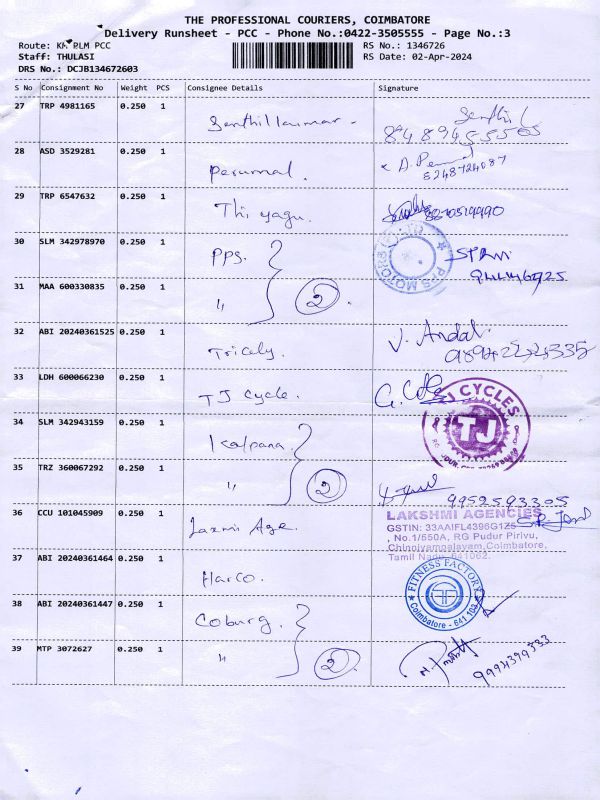 THE PROFESSIONAL COURIERS, COIMBATORE
Delivery Runsheet - PCC - Phone No.:0422-3505555 - Page No.:3
Route: PLM PCC
RS No.: 1346726
Staff: THULASI
RS Date: 02-Apr-2024
DRS No.: DCJB134672603
S No Consignment No Weight PCS Consignee Details Signature
27 TRP 4981165 0.250 1 Senthilkumar. Senthil
8489455505
28 ASD 3529281 0.250 1 Perumal.
29 TRP 6547632 0.250 1 Thiyagu.
30 SLM 342978970 0.250 1 PPS. PPS MOTORS
31 MAA 600330835 0.250 1 " 2
32 ABI 20240361525 0.250 1 Tricely. V. Andal.
33 LDH 600066230 0.250 1 TJ Cycle.
TJ CYCLES
TJ
34 SLM 342943159 0.250 1 Kalpana.
35 TRZ 360067292 0.250 1 " 2
9952593305
36 CCU 101045909 0.250 1 Laxmi Age.
LAKSHMI AGENCIES
GSTIN: 33AAIFL4396G1Z5
, No.1/550A, RG Pudur Pirivu,
Chinniyampalayam, Coimbatore,
Tamil Nadu, 641062.
37 ABI 20240361464 0.250 1 Harco.
FITNESS FACTORY
Coimbatore - 641 103
38 ABI 20240361447 0.250 1 Coburg.
39 MTP 3072627 0.250 1 " 2
9994399333